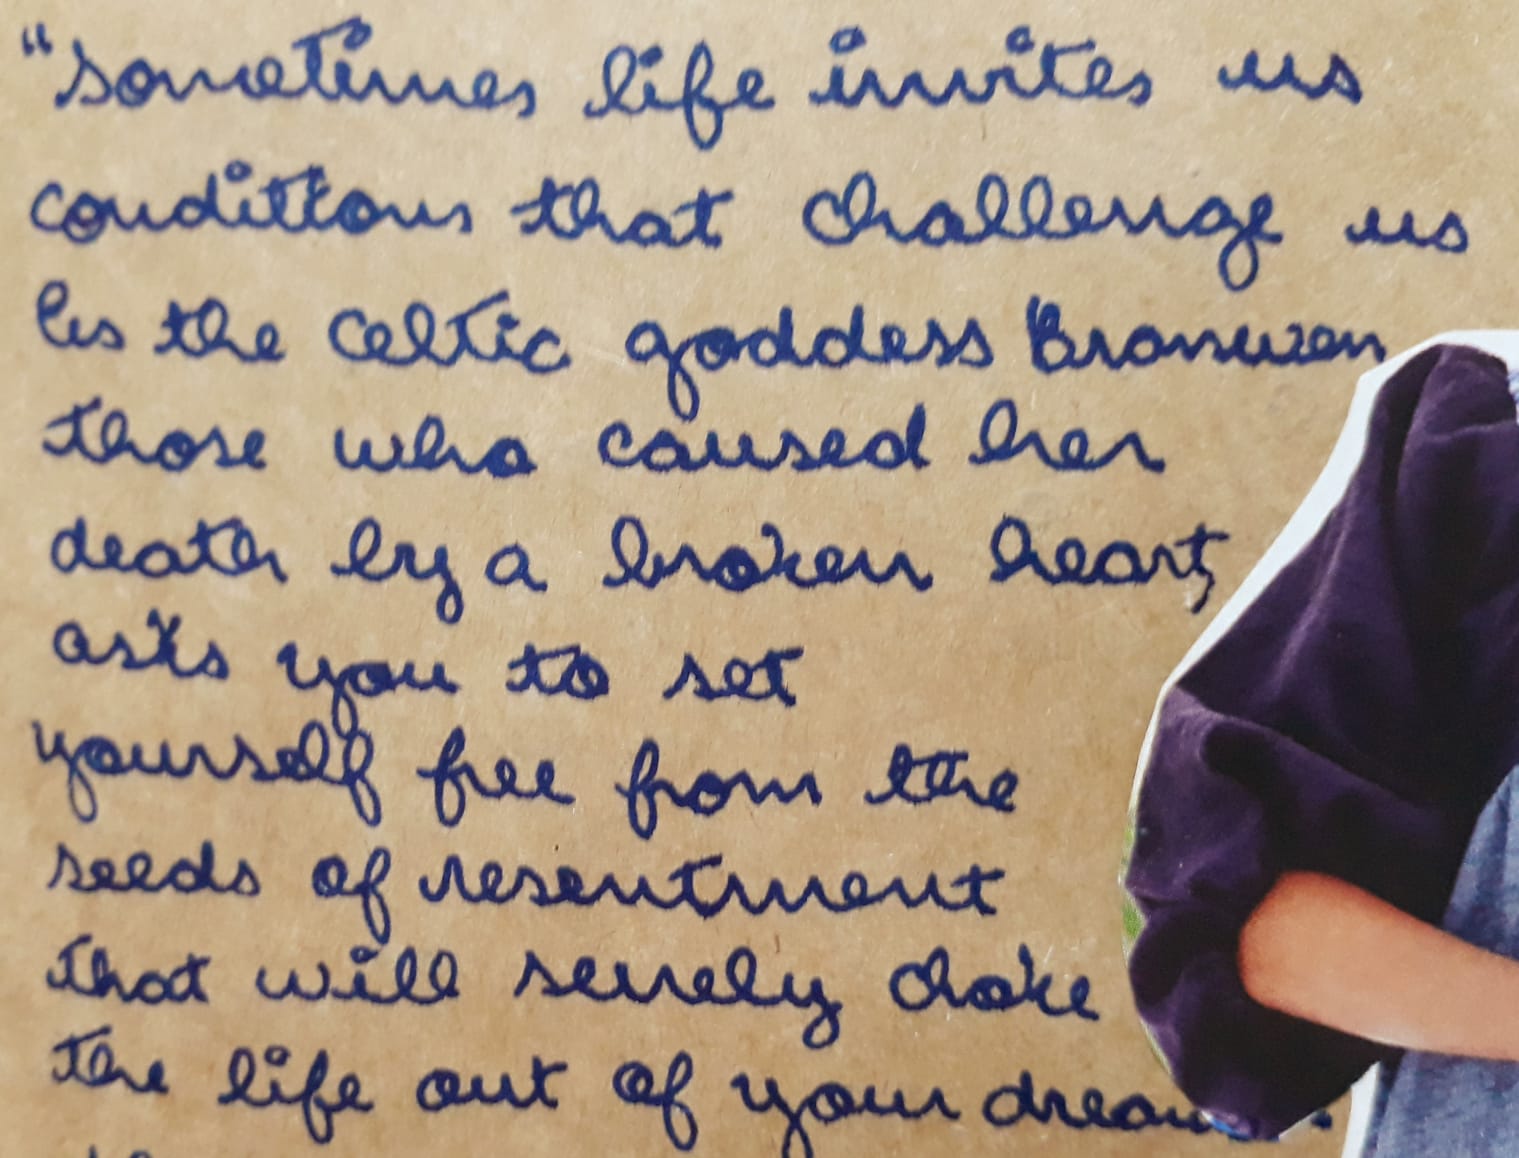 "Sometimes life invites us
conditions that challenge us
les the Celtic goddess Bronwen
those who caused her
death by a broken heart,
asks you to set
yourself free from the
seeds of resentment
that will serrely choke
the life out of your